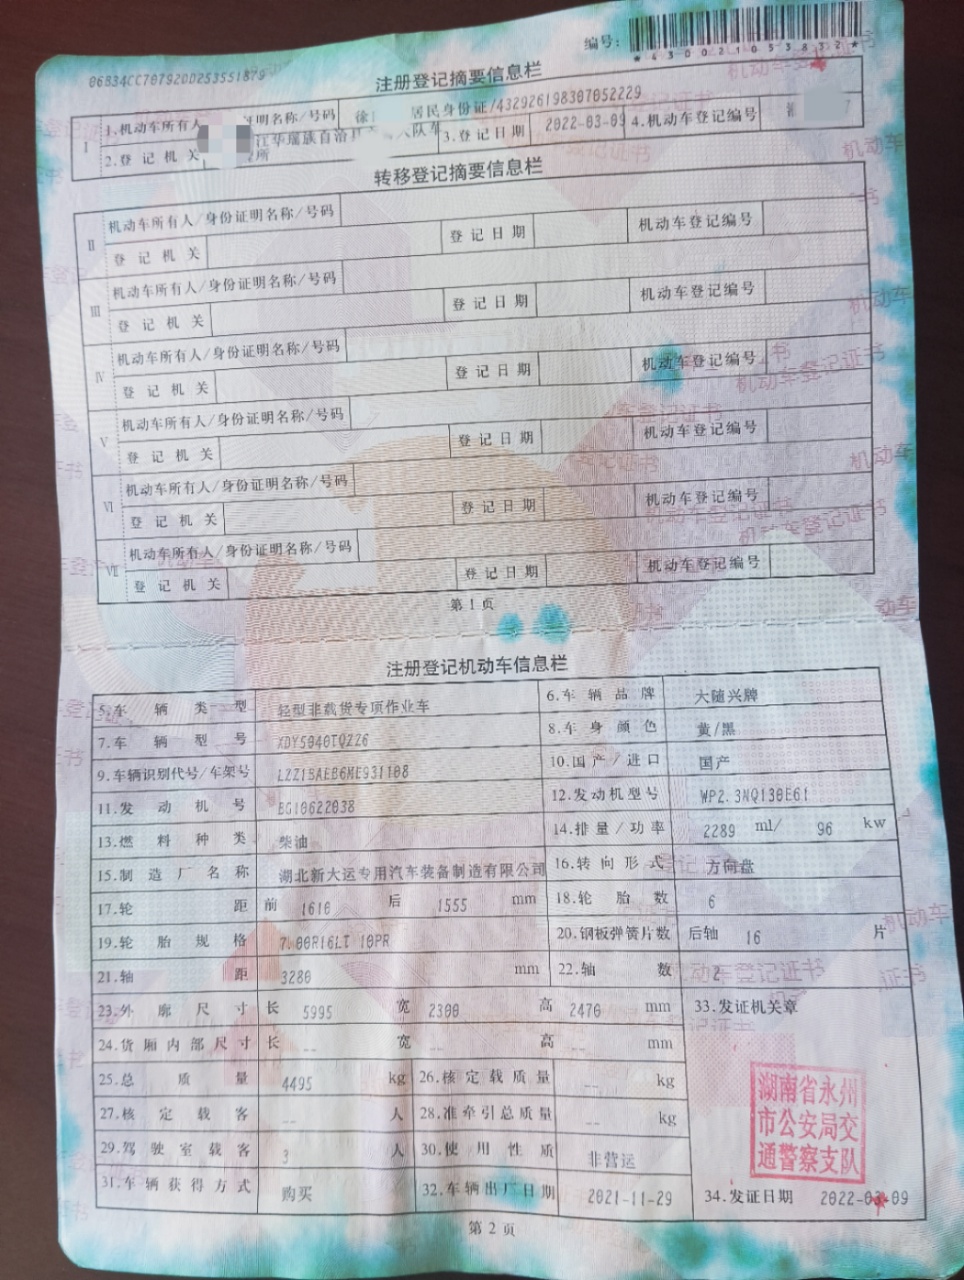 编号：
*430021053832*
06B34CC7079200253551879
注册登记摘要信息栏
I
1.机动车所有人 证明名称/号码 徐 居民身份证/432926198307052229
2.登记机关 江华瑶族自治县 大队车 所 3.登记日期 2022-03-09 4.机动车登记编号 湘 7
转移登记摘要信息栏
II 机动车所有人/身份证明名称/号码
登记机关 登记日期 机动车登记编号
III 机动车所有人/身份证明名称/号码
登记机关 登记日期 机动车登记编号
IV 机动车所有人/身份证明名称/号码
登记机关 登记日期 机动车登记编号
V 机动车所有人/身份证明名称/号码
登记机关 登记日期 机动车登记编号
VI 机动车所有人/身份证明名称/号码
登记机关 登记日期 机动车登记编号
VII 机动车所有人/身份证明名称/号码
登记机关 登记日期 机动车登记编号
第1页
注册登记机动车信息栏
5.车辆类型 轻型非载货专项作业车 6.车辆品牌 大随兴牌
7.车辆型号 XDY5040TQZZ6 8.车身颜色 黄/黑
9.车辆识别代号/车架号 LZZ1BAEB6ME931108 10.国产/进口 国产
11.发动机号 BG10622038 12.发动机型号 WP2.3NQ130E61
13.燃料种类 柴油 14.排量/功率 2289 ml/ 96 kw
15.制造厂名称 湖北新大运专用汽车装备制造有限公司 16.转向形式 方向盘
17.轮距 前 1610 后 1555 mm 18.轮胎数 6
19.轮胎规格 7.00R16LT 10PR 20.钢板弹簧片数 后轴 16 片
21.轴距 3280 mm 22.轴数 2
23.外廓尺寸 长 5995 宽 2300 高 2470 mm 33.发证机关章
24.货厢内部尺寸 长 -- 宽 -- 高 -- mm
25.总质量 4495 kg 26.核定载质量 -- kg
27.核定载客 -- 人 28.准牵引总质量 -- kg
29.驾驶室载客 3 人 30.使用性质 非营运
31.车辆获得方式 购买 32.车辆出厂日期 2021-11-29 34.发证日期 2022-03-09
湖南省永州
市公安局交
通警察支队
第2页